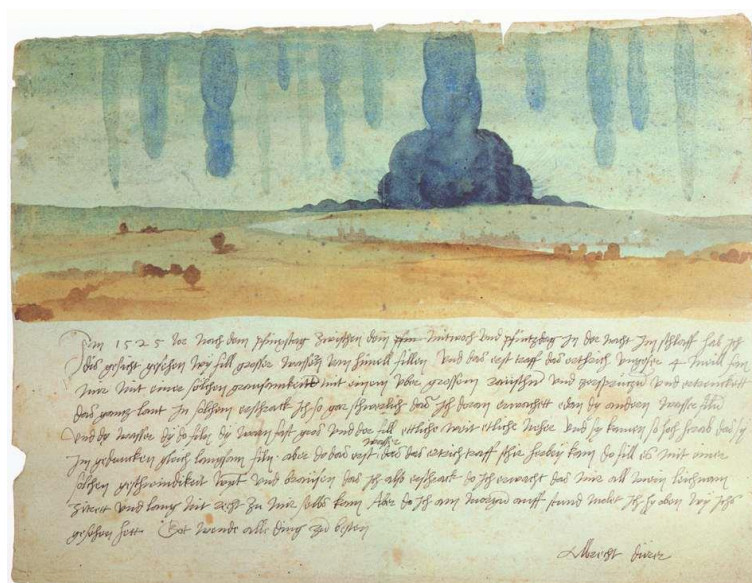 Im 1525 Jor nach dem pfinxtag zwischen dem Mitwoch und pfintzdag in der nacht im schlaff hab ich
dis gesicht gesehen wy fill grosser wassern vom himell fillen Und das erst traff das erthrich ungefer 4 meill fan
mir mit einer solchen grausamkeitt mit einem uber grossem raüschn und zersprützn und ertrenckett
das gantz lant In solchem erschrack ich so gar schwerlich das ich doran erwachett edan dy andern wasser filn
Und dy wasser dy do filn dy warn fast gros und der fill ettliche weit ettliche neher und sy kamen so hoch herab das sy
im gedancken gleich langsam filn. aber do das erst wasser das das ertrich traff schir herbey kam do fill es mit einer
solchen geschwindikeit wynt und braüsen das ich also erschrack do ich erwacht das mir all mein leichnam
zitrett und lang nit recht zu mir selbs kam Aber do ich am morgen auff stund molet ich hy oben wy ichs
gesehen hett. Got wende alle ding zu besten
Albrecht dürer